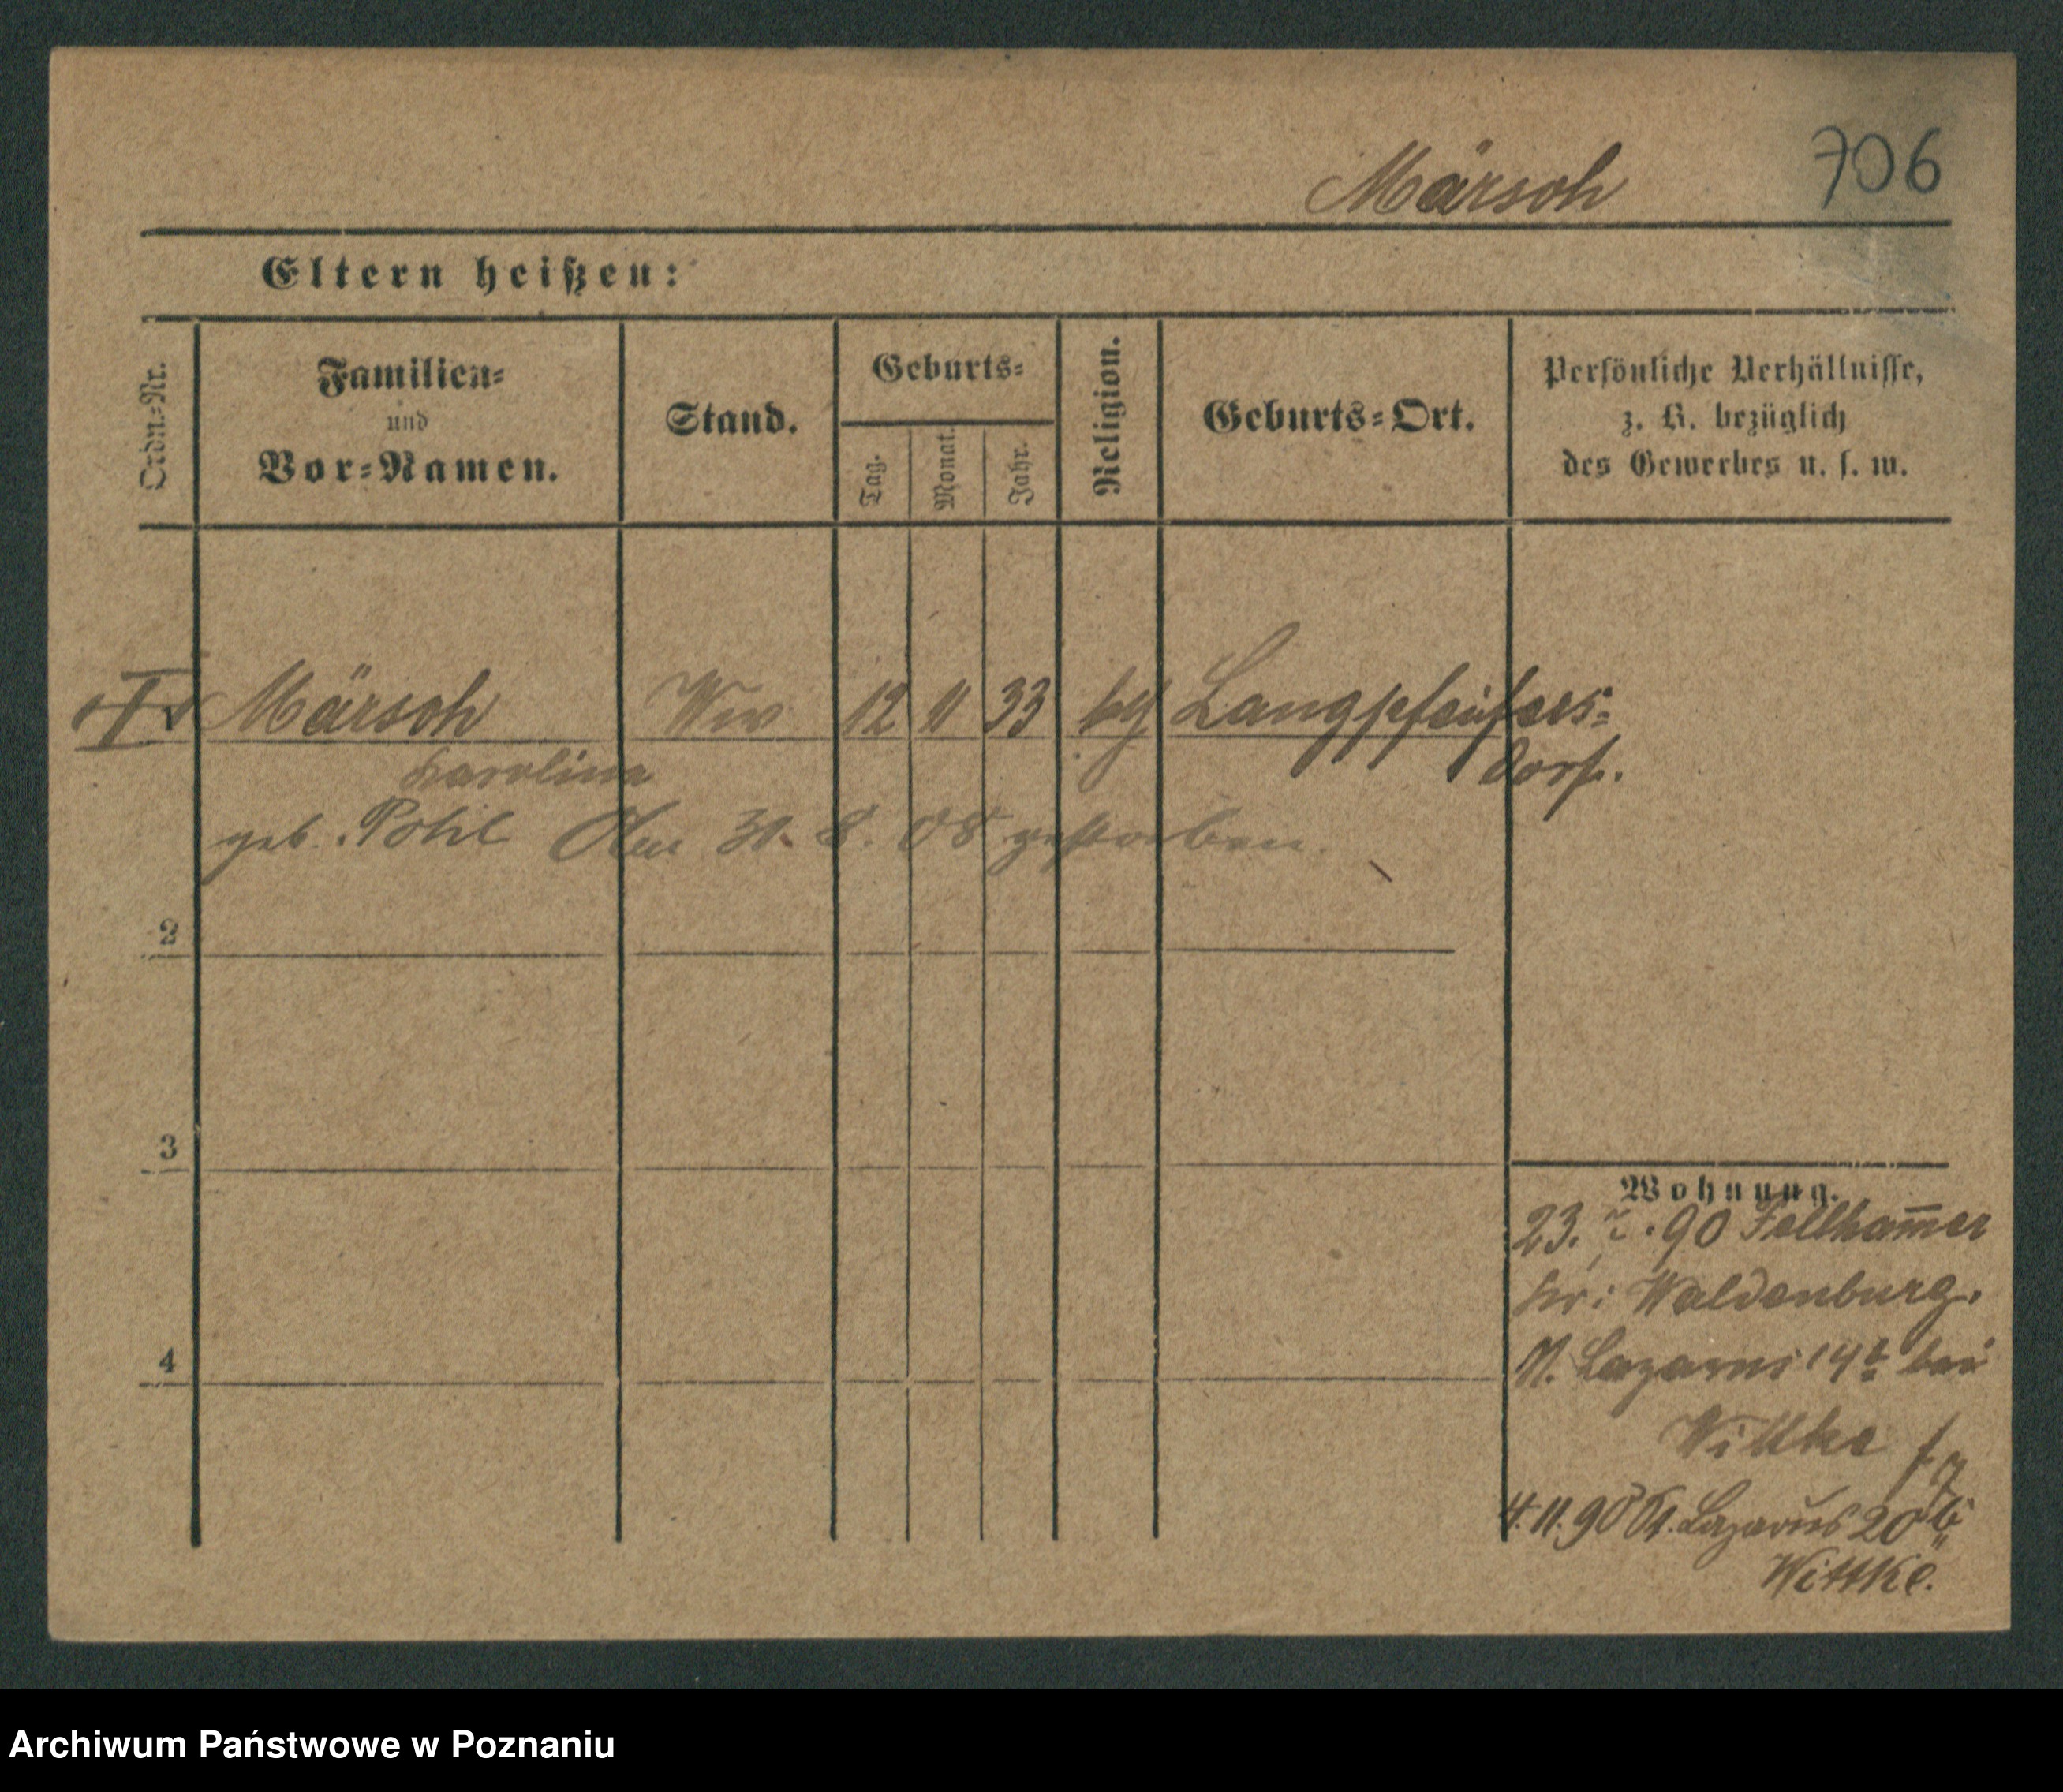 706
Märsch
Eltern heißen:
Ordn.-Nr.
Familien-
und
Vor-Namen.
Stand.
Geburts-
Tag.
Monat.
Jahr.
Religion.
Geburts-Ort.
Persönliche Verhältnisse,
z. B. bezüglich
des Gewerbes u. s. w.
Märsch Ww 12 11 33 Langpfeifers-
dorf.
Karolina
geb. Pohl Am 31. 8. 08 gestorben.
2
3
4
Wohnung.
23. 7. 90 Fellham̅er
Kr: Waldenburg.
St. Lazarus 14 bei
Wittke
4. 11. 90 St. Lazarus 20 b.
Wittke.
Archiwum Państwowe w Poznaniu